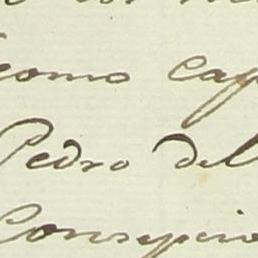 como Cap
Pedro del
Consepcio